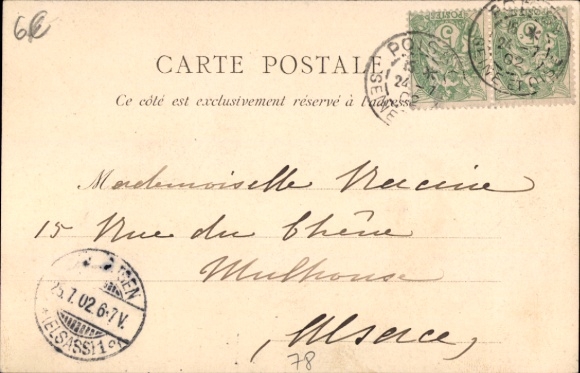 6€
CARTE POSTALE
Ce côté est exclusivement réservé à l'adresse
Mademoiselle Racine
15 Rue du Chêne
Mulhouse
Alsace
78
25.1.02.6-7V.
(ELSASS)